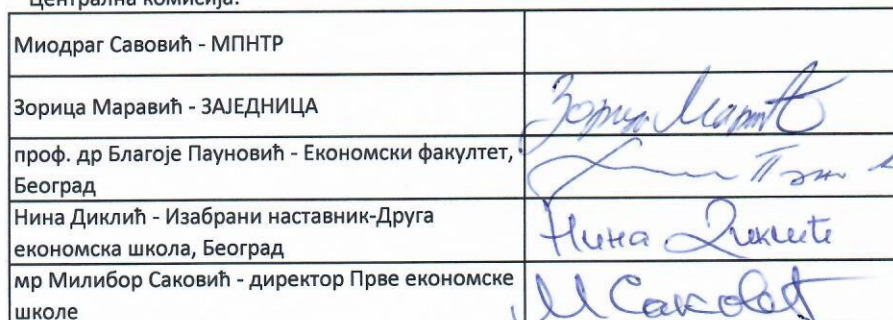 Централна комисија:
Миодраг Савовић - МПНТР
Зорица Маравић - ЗАЈЕДНИЦА
Зорица Марав
проф. др Благоје Пауновић - Економски факултет,
Београд
Нина Диклић - Изабрани наставник-Друга
економска школа, Београд
Нина Диклић
мр Милибор Саковић - директор Прве економске
школе
М Саковић